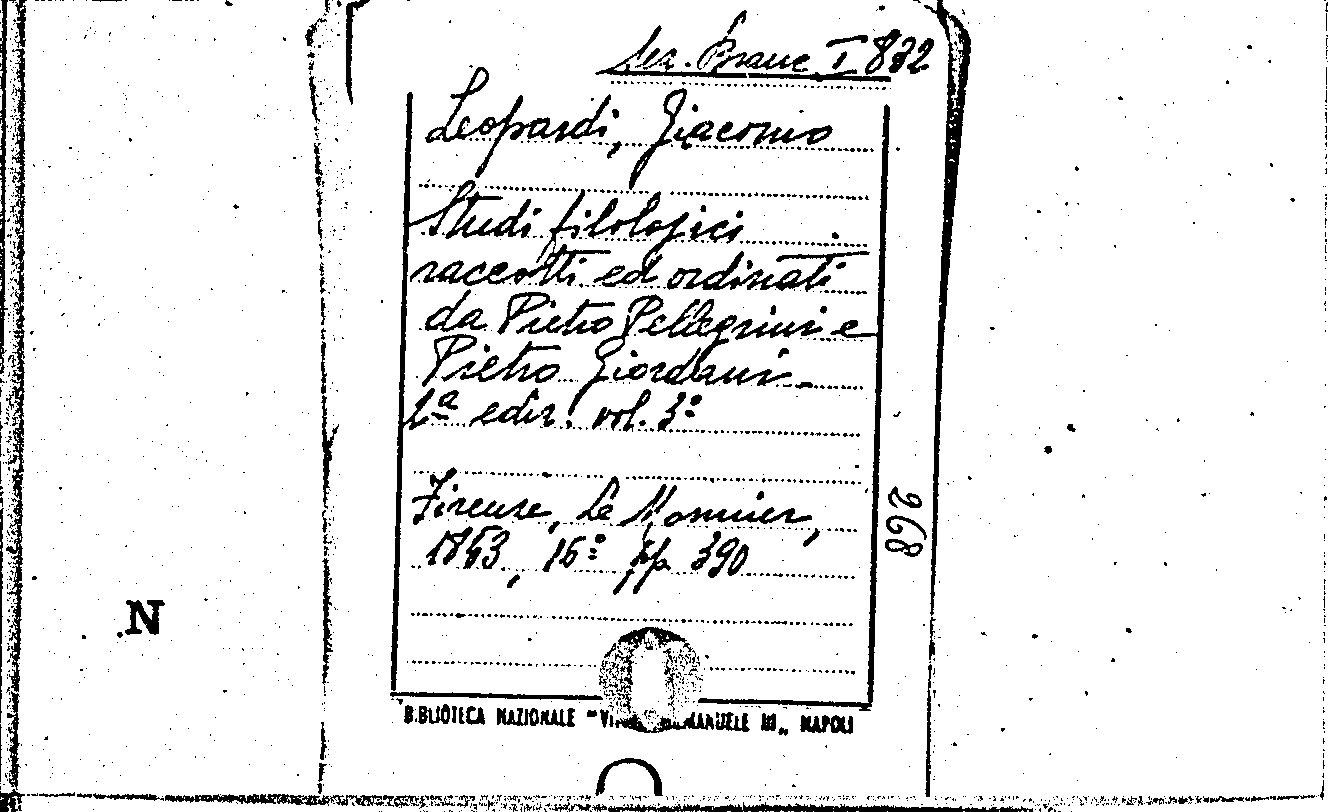 Sez. Branc. I 832
Leopardi, Giacomo
Studi filologici
raccolti ed ordinati
da Pietro Pellegrini e
Pietro Giordani -
1ª ediz. vol. 3º
Firenze, Le Monnier,
1853, 16º pp 390
268
N
BIBLIOTECA NAZIONALE "VITT. EMANUELE III„ NAPOLI